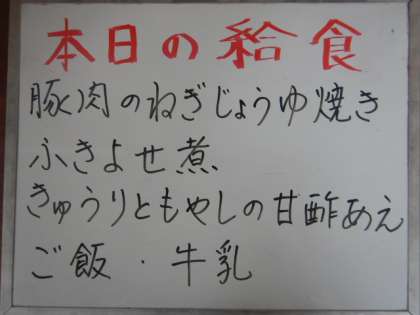 本日の給食
豚肉のねぎじょうゆ焼き
ふきよせ煮
きゅうりともやしの甘酢あえ
ご飯・牛乳